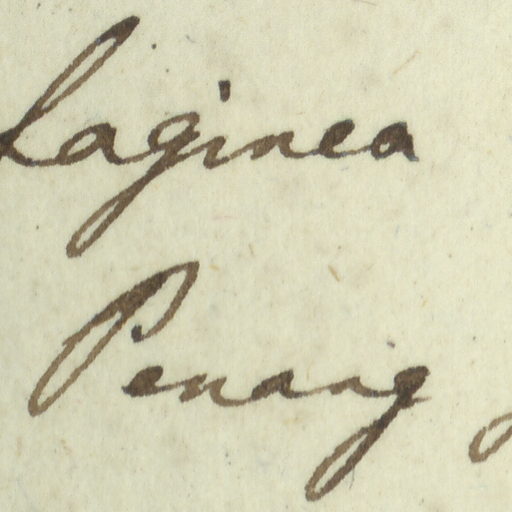 Laginea
Penang